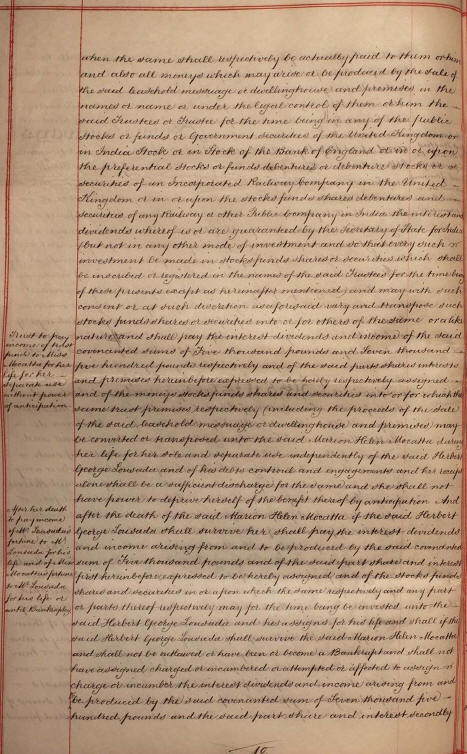 when the same shall respectively be actually paid to them or him
and also all moneys which may arise or be produced by the sale of
the said leasehold messuage or dwellinghouse and premises in the
names or name or under the legal control of them or him the
said Trustees or Trustee for the time being in any of the public
Stocks or funds or Government securities of the United Kingdom or
in India Stock or in Stock of the Bank of England or in or upon
the preferential stocks or funds debentures or debenture stocks or
securities of an Incorporated Railway Company in the United
Kingdom or in or upon the stocks funds shares debentures and
securities of any Railway or other Public Company in India the interest and
dividends whereof is or are guaranteed by the Secretary of State for India
(but not in any other mode of investment and so that every such
investment be made in stocks funds shares or securities which shall
be inscribed or registered in the names of the said Trustees for the time being
of these presents except as hereinafter mentioned) and may with such
consent or at such discretion as aforesaid vary and transpose such
stocks funds shares or securities into or for others of the same or a like
nature and shall pay the interest dividends and income of the said
covenanted sums of Five thousand pounds and Seven thousand
five hundred pounds respectively and of the said parts shares interests
and premises hereinbefore expressed to be hereby respectively assigned
and of the moneys stocks funds shares and securities into or for which the
same trust premises respectively (including the proceeds of the sale
of the said leasehold messuage or dwellinghouse and premises) may
be converted or transposed unto the said Marion Helen Mocatta during
her life for her sole and separate use independently of the said Herbert
George Lousada and of his debts control and engagements and her receipt
alone shall be a sufficient discharge for the same and she shall not
have power to deprive herself of the benefit thereof by anticipation And
after the death of the said Marion Helen Mocatta if the said Herbert
George Lousada shall survive her shall pay the interest dividends
and income arising from and to be produced by the said covenanted
sum of Five thousand pounds and of the said part share and interest
first hereinbefore expressed to be hereby assigned and of the stocks funds
shares and securities in or upon which the same respectively and any part
or parts thereof respectively may for the time being be invested unto the
said Herbert George Lousada and his assigns for his life and shall if the
said Herbert George Lousada shall survive the said Marion Helen Mocatta
and shall not be outlawed or have been or become a Bankrupt and shall not
have assigned charged or incumbered or attempted or affected to assign
charge or incumber the interest dividends and income arising from and
be produced by the said covenanted sum of Seven thousand five
hundred pounds and the said part share and interest secondly
Trust to pay
income of
funds to Miss
Mocatta for her
life for her
separate use
without power
of anticipation
After her death
to pay income
of Mr Lousada's
fortune to Mr
Lousada for his
life and of Miss
Mocatta's fortune
to Mr Lousada
for his life or
until Bankruptcy
10